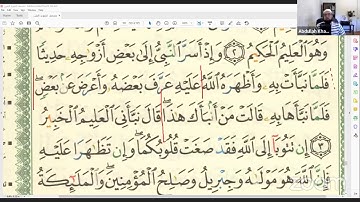 Abdullah Kha...
وَهُوَ ٱلْعَلِيمُ ٱلْحَكِيمُ ٢ وَإِذْ أَسَرَّ ٱلنَّبِيُّ إِلَىٰ بَعْضِ أَزْوَٰجِهِۦ حَدِيثًا
فَلَمَّا نَبَّأَتْ بِهِۦ وَأَظْهَرَهُ ٱللَّهُ عَلَيْهِ عَرَّفَ بَعْضَهُۥ وَأَعْرَضَ عَنۢ بَعْضٍ
فَلَمَّا نَبَّأَهَا بِهِۦ قَالَتْ مَنْ أَنۢبَأَكَ هَٰذَا قَالَ نَبَّأَنِىَ ٱلْعَلِيمُ ٱلْخَبِيرُ
٣ إِن تَتُوبَآ إِلَى ٱللَّهِ فَقَدْ صَغَتْ قُلُوبُكُمَا وَإِن تَظَٰهَرَا عَلَيْهِ
فَإِنَّ ٱللَّهَ هُوَ مَوْلَىٰهُ وَجِبْرِيلُ وَصَٰلِحُ ٱلْمُؤْمِنِينَ وَٱلْمَلَٰٓئِكَةُ